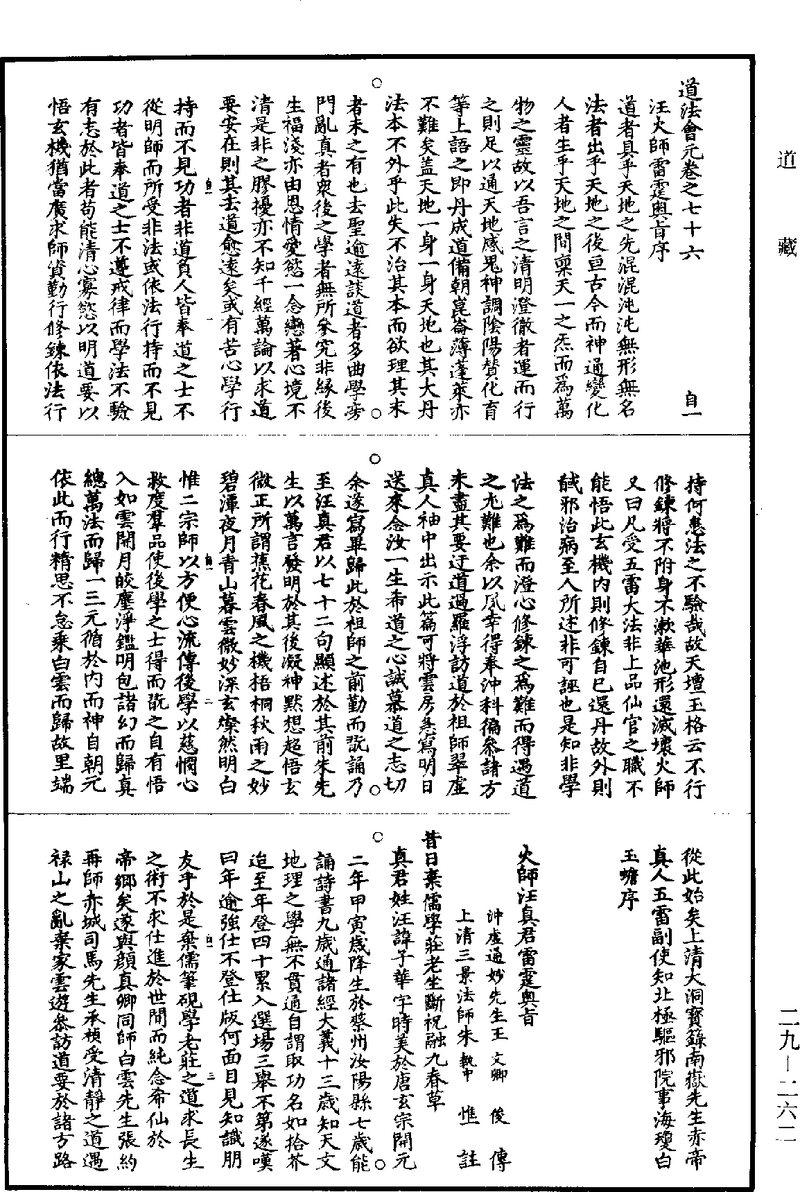 道藏
道法會元卷之七十六
自一
汪火師雷霆奧旨序
道者具乎天地之先混混沌沌無形無名
法者出乎天地之後亘古今而神通變化
人者生乎天地之間稟天一之炁而爲萬
物之靈故以吾言之清明澄徹者運而行
之則足以通天地感鬼神調陰陽贊化育
等上語之即丹成道備朝崑崙薄蓬萊亦
不難矣蓋天地一身一身天地也其大丹
法本不外乎此失不治其本而欲理其末
者未之有也去聖逾遠談道者多曲學旁
門亂真者衆後之學者無所參究非緣後
生福淺亦由恩情愛慾一念戀著心境不
清是非之膠擾亦不知千經萬論以求道
要安在則其去道愈遠矣或有苦心學行
持而不見功者非道負人皆奉道之士不
從明師而所受非法或依法行持而不見
功者皆奉道之士不遵戒律而學法不驗
有志於此者苟能清心寡慾以明道要以
悟玄機猶當廣求師資勤行修鍊依法行
持何患法之不驗哉故天壇玉格云不行
修鍊將不附身不漱華池形還滅壞火師
又曰凡受五雷大法非上品仙官之職不
能悟此玄機內則修鍊自已還丹故外則
馘邪治病至人所述非可誣也是知非學
法之爲難而澄心修鍊之爲難而得遇道
之尤難也余以夙幸得奉沖科徧參諸方
未盡其要迂道過羅浮訪道於祖師翠虛
真人袖中出示此篇可將雲房急寫明日
送來念汝一生希道之心誠慕道之志切
余遂寫畢歸此於祖師之前勤而翫誦乃
至汪真君以七十二句顯述於其前朱先
生以萬言發明於其後凝神默想超悟玄
微正所謂蕉花春風之機梧桐秋雨之妙
碧潭夜月青山暮雲微妙深玄燦然明白
惟二宗師以方便心流傳後學以慈憫心
救度羣品使後學之士得而翫之自有悟
入如雲開月皎塵淨鑑明包諸幻而歸真
總萬法而歸一三元循於內而神自朝元
依此而行精思不怠乘白雲而歸故里端
從此始矣上清大洞寳籙南嶽先生赤帝
真人五雷副使知北極驅邪院事海瓊白
玉蟾序
火師汪真君雷霆奧旨
沖虛通妙先生王 文卿 俊 傳
上清三景法師朱 執中 惟 註
昔日棄儒學莊老生斷祝融九春草
真君姓汪諱子華字時美於唐玄宗開元
二年甲寅歲降生於蔡州汝陽縣七歲能
誦詩書九歲通諸經大義十三歲知天文
地理之學無不貫通自謂取功名如拾芥
迨至年登四十累入選場三舉不第遂嘆
曰年逾強仕不登仕版何面目見知識朋
友乎於是棄儒筆硯學老莊之道求長生
之術不求仕進於世間而純念希仙於
帝鄉矣遂與顔真卿同師白雲先生張約
再師赤城司馬先生承禎受清靜之道遇
祿山之亂棄家雲遊叅訪道要於諸方路
二九—二六二